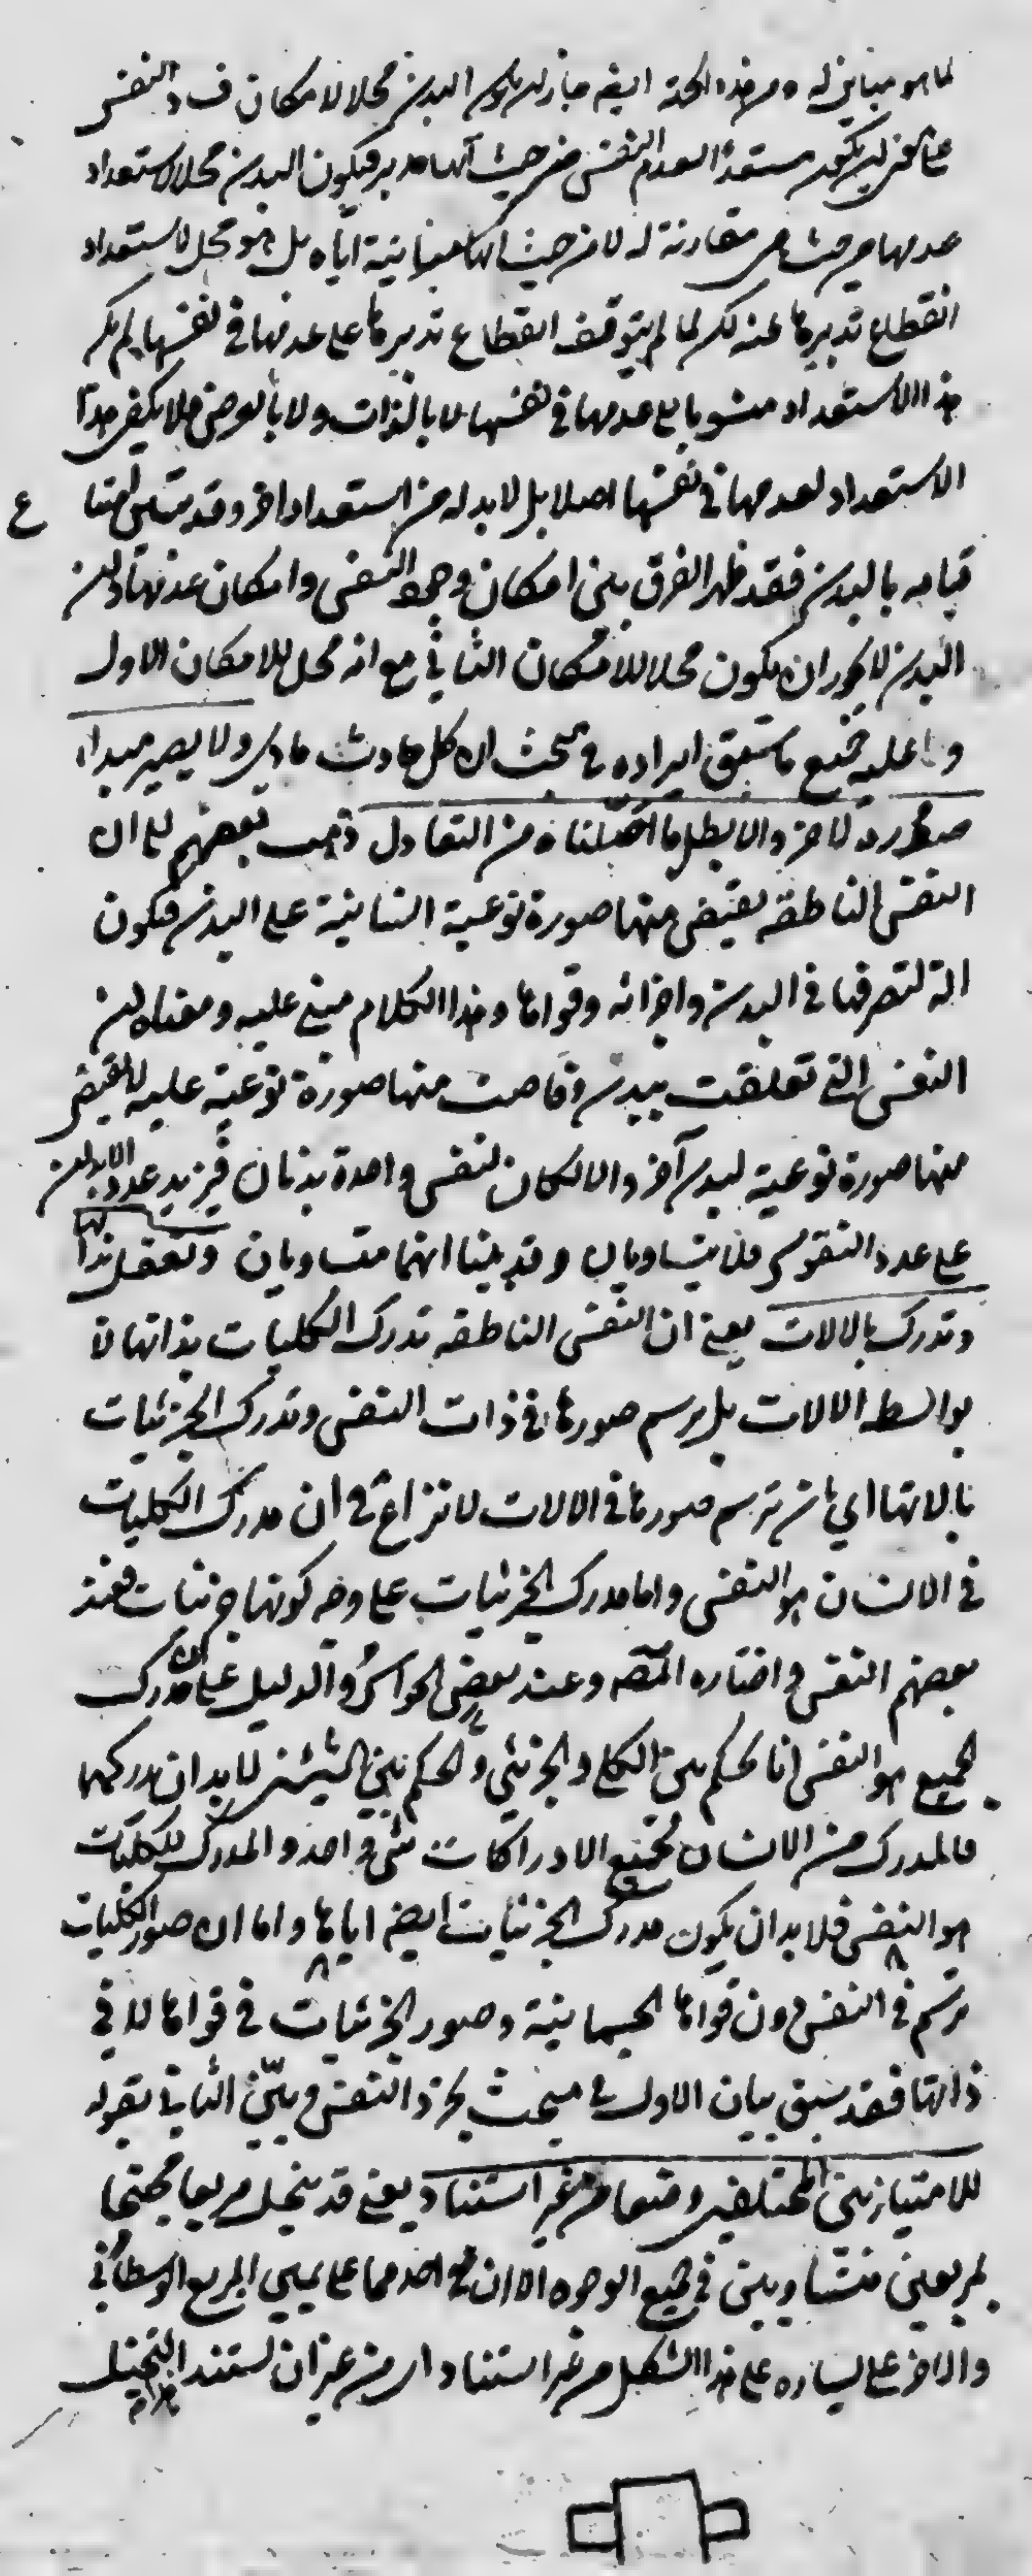 لما هو مباين له ومن هذه الجهة ايضا جاز ان يكون البدن محلا لامكان فساد النفس
على معنى ان يكون مستعدا لعدم النفس من حيث انها مدبر فيكون البدن محلا لاستعداد
عدمها من حيث هي مقارنة له لا من حيث انها مباينة اياه بل هو محل لاستعداد
انقطاع تدبيرها عنه لكن لما لم يتوقف انقطاع تدبيرها على عدمها في نفسها لم يكن
هذا الاستعداد منسوبا الى عدمها في نفسها لا بالذات ولا بالعرض فلا يكفي هذا
الاستعداد لعدمها في نفسها اصلا بل لابد له من استعداد اخر وقد تبين امتناع
قيامه بالبدن فقد ظهر الفرق بين امكان وجود النفس وامكان عدمها وان
البدن لا يجوز ان يكون محلا للامكان الثاني مع انه محل للامكان الاول
و عليه جميع ما سبق ايراده في مبحث ان كل حادث مادي ولا يصير مبدأ
صورة لاخر والا بطل ما اصلناه من التعادل ذهب بعضهم الى ان
النفس الناطقة يفيض منها صورة نوعية انسانية على البدن فيكون
الة لتصرفها في البدن واجزائه وقواها وهذا الكلام مبني عليه ومعناه ان
النفس التي تعلقت ببدن وفاضت منها صورة نوعية عليه لا يفيض
منها صورة نوعية لبدن آخر والا لكان لنفس واحدة بدنان فيزيد عدد الابدان
على عدد النفوس فلا يتساويان وقد بينا انهما متساويان وتعقل بذاتها
وتدرك بالالات يعني ان النفس الناطقه تدرك الكليات بذاتها لا
بواسطه الالات بل يرسم صورها في ذات النفس وتدرك الجزئيات
بالاتها اي بان ترسم صورها في الالات لا نزاع في ان مدرك الكليات
في الانسان هو النفس واما مدرك الجزئيات على وجه كونها جزئيات فعند
بعضهم النفس واختاره المص وعند بعض الحواس والدليل على ان مدرك
الجميع هو النفس انا نحكم بين الكلي والجزئي والحكم بين الشيئين لابد ان يدركهما
فالمدرك من الانسان لجميع الادراكات شئ واحد والمدرك للكليات
هو النفس فلابد ان يكون مدرك الجزئيات ايضا اياها واما ان صور الكليات
ترسم في النفس دون قواها الجسمانية وصور الجزئيات في قواها لا في
ذاتها فقد سبق بيان الاول في مبحث تجرد النفس وبين الثاني بقوله
للامتياز بين المختلفين وضعا من غير استناد يعني قد نتخيل مربعا مجنحا
لمربعين متساويين في جميع الوجوه الا ان احدهما على يمين المربع الوسطاني
والاخر على يساره على هذا الشكل من غير استناد اي من غير ان يستند التخيل